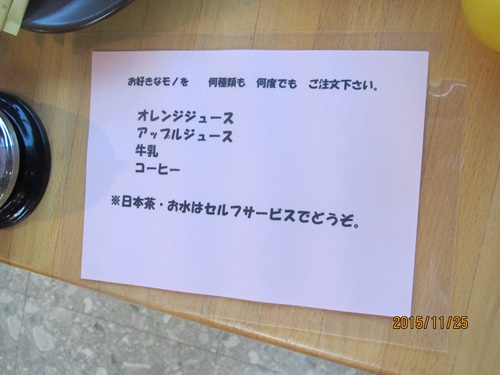 お好きなモノを　何種類も　何度でも　ご注文下さい。
オレンジジュース
アップルジュース
牛乳
コーヒー
※日本茶・お水はセルフサービスでどうぞ。
2015/11/25